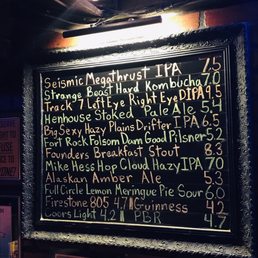 Seismic Megathrust IPA 7.5
Strange Beast Hard Kombucha 7.0
Track 7 Left Eye Right Eye DIPA 9.5
Henhouse Stoked Pale Ale 5.4
Big Sexy Hazy Plains Drifter IPA 6.5
Fort Rock Folsom Dam Good Pilsner 5.2
Founders Breakfast Stout 8.3
Mike Hess Hop Cloud Hazy IPA 7.0
Alaskan Amber Ale 5.3
Full Circle Lemon Meringue Pie Sour 6.0
Firestone 805 4.7 Guinness 4.2
Coors Light 4.2 PBR 4.7